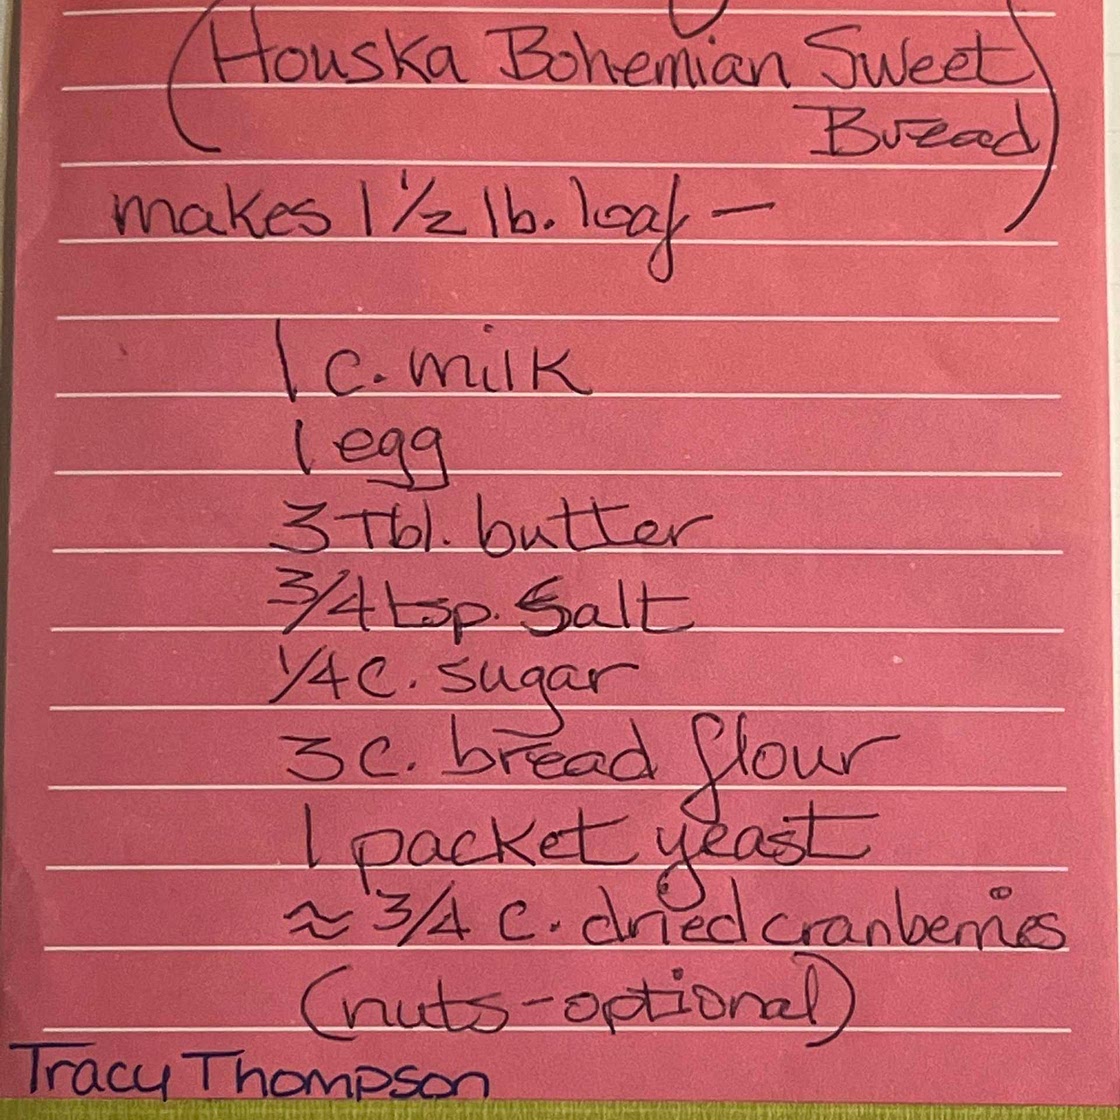 (Houska Bohemian Sweet
Bread)
makes 1 1/2 lb. loaf —
1 c. milk
1 egg
3 Tbl. butter
3/4 tsp. Salt
1/4 c. sugar
3 c. bread flour
1 packet yeast
≈ 3/4 c. dried cranberries
(nuts-optional)
Tracy Thompson